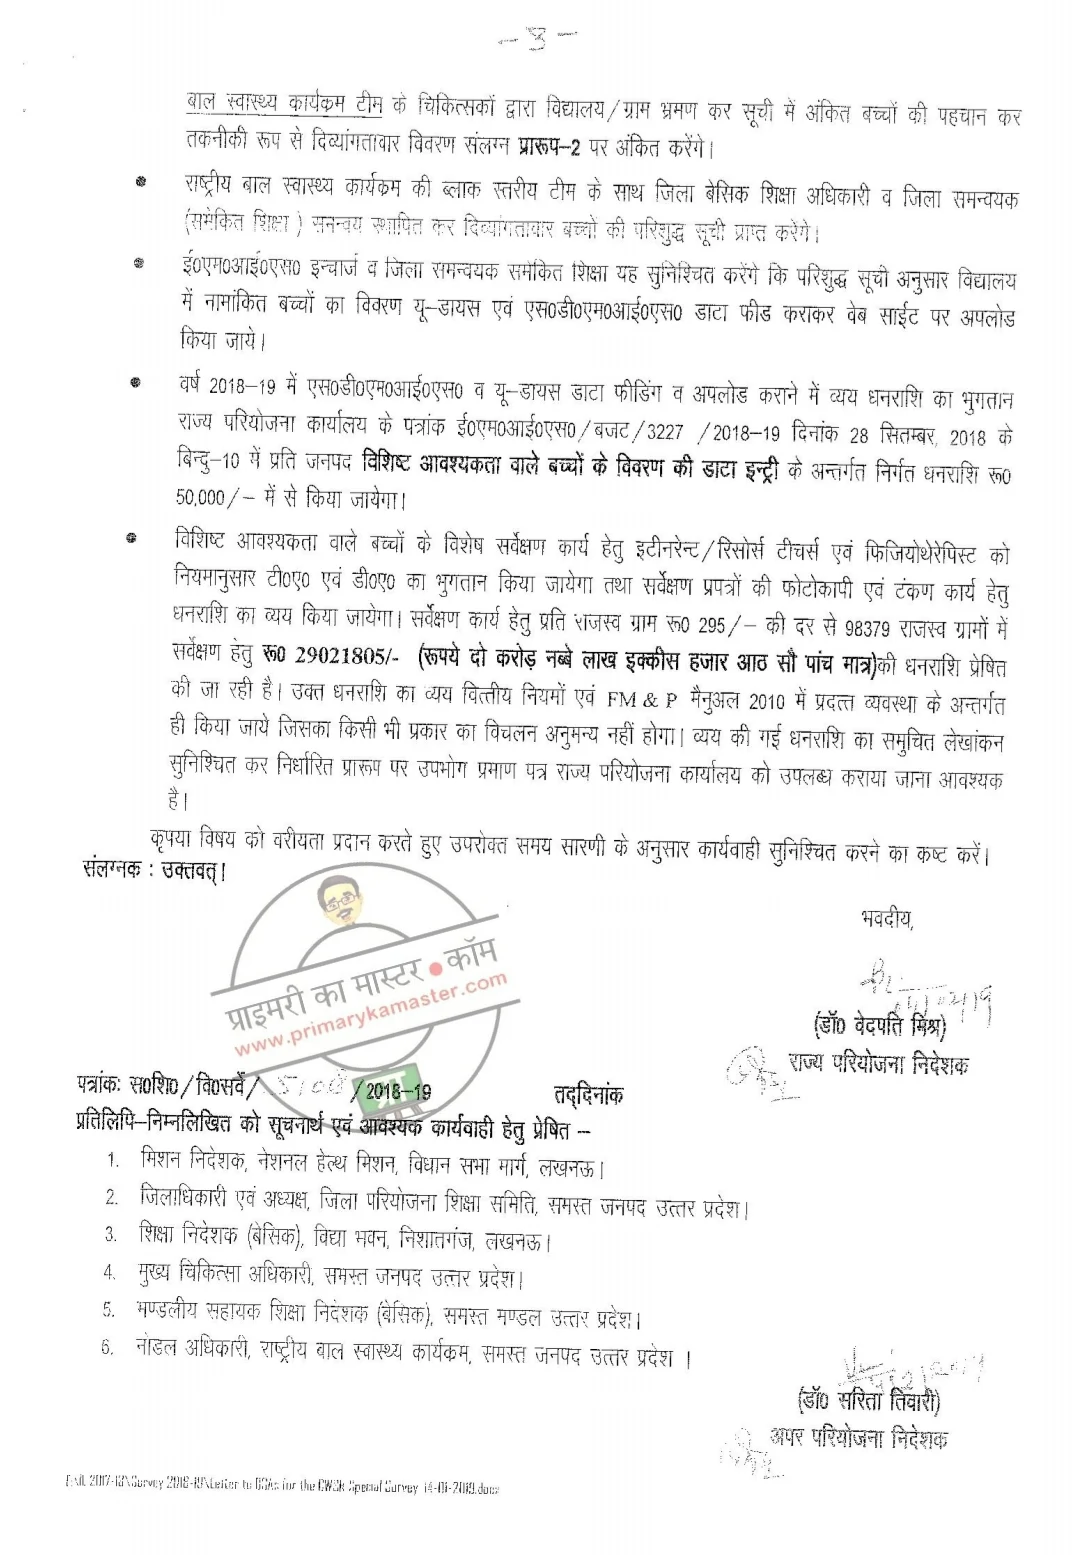 -3-
बाल स्वास्थ्य कार्यक्रम टीम के चिकित्सकों द्वारा विद्यालय/ग्राम भ्रमण कर सूची में अंकित बच्चों की पहचान कर
तकनीकी रूप से दिव्यांगतावार विवरण संलग्न प्रारूप-2 पर अंकित करेंगे।
राष्ट्रीय बाल स्वास्थ्य कार्यक्रम की ब्लाक स्तरीय टीम के साथ जिला बेसिक शिक्षा अधिकारी व जिला समन्वयक
(समेकित शिक्षा ) समन्वय स्थापित कर दिव्यांगतावार बच्चों की परिशुद्ध सूची प्राप्त करेंगे।
ई०एम०आई०एस० इन्चार्ज व जिला समन्वयक समेकित शिक्षा यह सुनिश्चित करेंगे कि परिशुद्ध सूची अनुसार विद्यालय
में नामांकित बच्चों का विवरण यू-डायस एवं एस०डी०एम०आई०एस० डाटा फीड कराकर वेब साईट पर अपलोड
किया जाये।
वर्ष 2018-19 में एस०डी०एम०आई०एस० व यू-डायस डाटा फीडिंग व अपलोड कराने में व्यय धनराशि का भुगतान
राज्य परियोजना कार्यालय के पत्रांक ई०एम०आई०एस०/बजट/3227 /2018-19 दिनांक 28 सितम्बर, 2018 के
बिन्दु-10 में प्रति जनपद विशिष्ट आवश्यकता वाले बच्चों के विवरण की डाटा इन्ट्री के अन्तर्गत निर्गत धनराशि रू०
50,000/- में से किया जायेगा।
विशिष्ट आवश्यकता वाले बच्चों के विशेष सर्वेक्षण कार्य हेतु इटीनरेन्ट/रिसोर्स टीचर्स एवं फिजियोथेरेपिस्ट को
नियमानुसार टी०ए० एवं डी०ए० का भुगतान किया जायेगा तथा सर्वेक्षण प्रपत्रों की फोटोकापी एवं टंकण कार्य हेतु
धनराशि का व्यय किया जायेगा। सर्वेक्षण कार्य हेतु प्रति राजस्व ग्राम रू० 295/- की दर से 98379 राजस्व ग्रामों में
सर्वेक्षण हेतु रू० 29021805/- (रूपये दो करोड़ नब्बे लाख इक्कीस हजार आठ सौ पांच मात्र)की धनराशि प्रेषित
की जा रही है। उक्त धनराशि का व्यय वित्तीय नियमों एवं FM & P मैनुअल 2010 में प्रदत्त व्यवस्था के अन्तर्गत
ही किया जाये जिसका किसी भी प्रकार का विचलन अनुमन्य नहीं होगा। व्यय की गई धनराशि का समुचित लेखांकन
सुनिश्चित कर निर्धारित प्रारूप पर उपभोग प्रमाण पत्र राज्य परियोजना कार्यालय को उपलब्ध कराया जाना आवश्यक
है।
कृपया विषय को वरीयता प्रदान करते हुए उपरोक्त समय सारणी के अनुसार कार्यवाही सुनिश्चित करने का कष्ट करें।
संलग्नक : उक्तवत्।
भवदीय,
प्राइमरी का मास्टर कॉम
www.primarykamaster.com
(डॉ० वेदपति मिश्र)
राज्य परियोजना निदेशक
पत्रांकः स०शि०/वि०सर्वे/ 5108 /2018-19 तद्दिनांक
प्रतिलिपि-निम्नलिखित को सूचनार्थ एवं आवश्यक कार्यवाही हेतु प्रेषित --
1. मिशन निदेशक, नेशनल हेल्थ मिशन, विधान सभा मार्ग, लखनऊ।
2. जिलाधिकारी एवं अध्यक्ष, जिला परियोजना शिक्षा समिति, समस्त जनपद उत्तर प्रदेश।
3. शिक्षा निदेशक (बेसिक), विद्या भवन, निशातगंज, लखनऊ।
4. मुख्य चिकित्सा अधिकारी, समस्त जनपद उत्तर प्रदेश।
5. मण्डलीय सहायक शिक्षा निदेशक (बेसिक), समस्त मण्डल उत्तर प्रदेश।
6. नोडल अधिकारी, राष्ट्रीय बाल स्वास्थ्य कार्यक्रम, समस्त जनपद उत्तर प्रदेश ।
(डॉ० सरिता तिवारी)
अपर परियोजना निदेशक
2017-18\Survey 2018-19\Letter to BSAs for the CWSN Special Survey 14-01-2019.docx